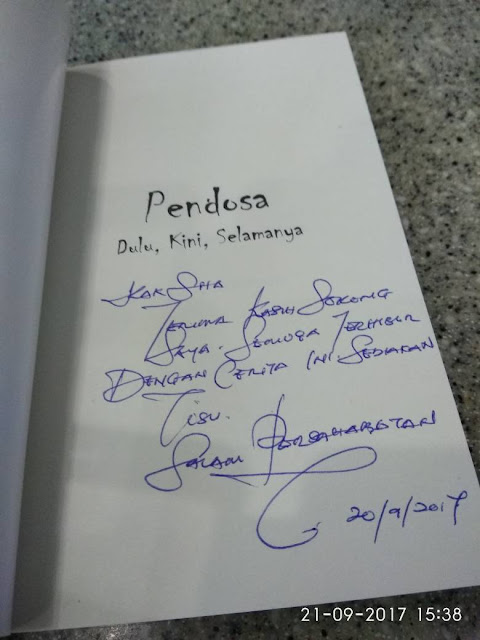 Pendosa
Dulu, Kini, Selamanya
KAK SHA
TERIMA KASIH SOKONG
SAYA. SEMOGA TERHIBUR
DENGAN CERITA INI. SEDIAKAN
TISU.
SALAM PERSAHABATAN
20/9/2017
21-09-2017 15:38